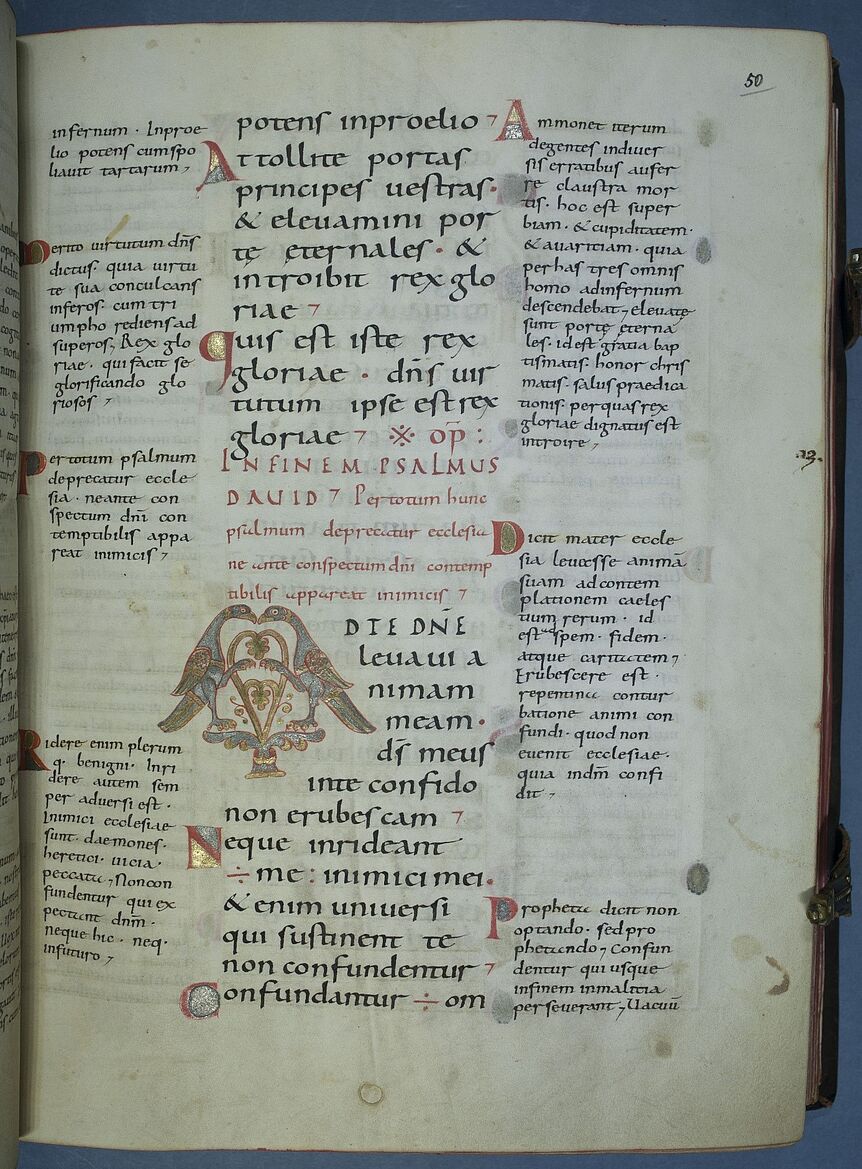 50
infernum · Inproe
lio potens cumspo
liauit tartarum ⁊
Perito uirtutum dn̄s
dictus· quia uirtu
te sua conculcans
inferos· cum tri
umpho rediens ad
superos; Rex glo
riae · qui facit se
glorificando glo
riosos ⁊
Per totum psalmum
deprecatur eccle
sia · ne ante con
spectum dn̄i con
temptibilis appa
reat inimicis ⁊
Ridere enim plerum
q· benigni· Inri
dere autem sem
per aduersi est ·
Inimici ecclesiae
sunt· daemones·
heretici· uicia·
peccata ⁊ Non con
fundentur qui ex
pectant dn̄m ·
neque hic · neq·
infuturo ⁊
potens inproelio ⁊
Attollite portas
principes uestras·
& eleuamini por
tę ęternales · &
introibit rex glo
riae ⁊
Quis est iste rex
gloriae · dn̄s uir
tutum ipse est rex
gloriae ⁊ ※ op̄ :
IN FINEM · PSALMUS
DAUID ⁊ Per totum hunc
psalmum deprecatur ecclesia
ne ante conspectum dn̄i contemp
tibilis appareat inimicis ⁊
AD TE DN̄E
leuaui a
nimam
meam ·
ds̄ meus
in te confido
non erubescam ⁊
Neque inrideant
÷ me : inimici mei ·
& enim uniuersi
qui sustinent te
non confundentur ⁊
Confundantur ÷ om
Ammonet iterum
degentes indiuer
sis erratibus aufer
re claustra mor
tis· hoc est super
biam · & cupiditatem·
& auaritiam · quia
per has tres omnis
homo ad infernum
descendebat ⁊ eleuatę
sunt portę ęterna
les· id est gratia bap
tismatis· honor chris
matis· salus praedica
tionis· per quas rex
gloriae dignatus est
introire ⁊
Dicit mater eccle
sia leuasse animā
suam ad contem
plationem caeles
tium rerum · id
est spem · fidem ·
atque caritatem ⁊
Erubescere est ·
repentina contur
batione animi con
fundi · quod non
euenit ecclesiae ·
quia indn̄m confi
dit ⁊
Propheta dicit non
optando · sed pro
phetando ⁊ Confun
dentur qui usque
infinem in malitia
perseuerant ⁊ Uacuū